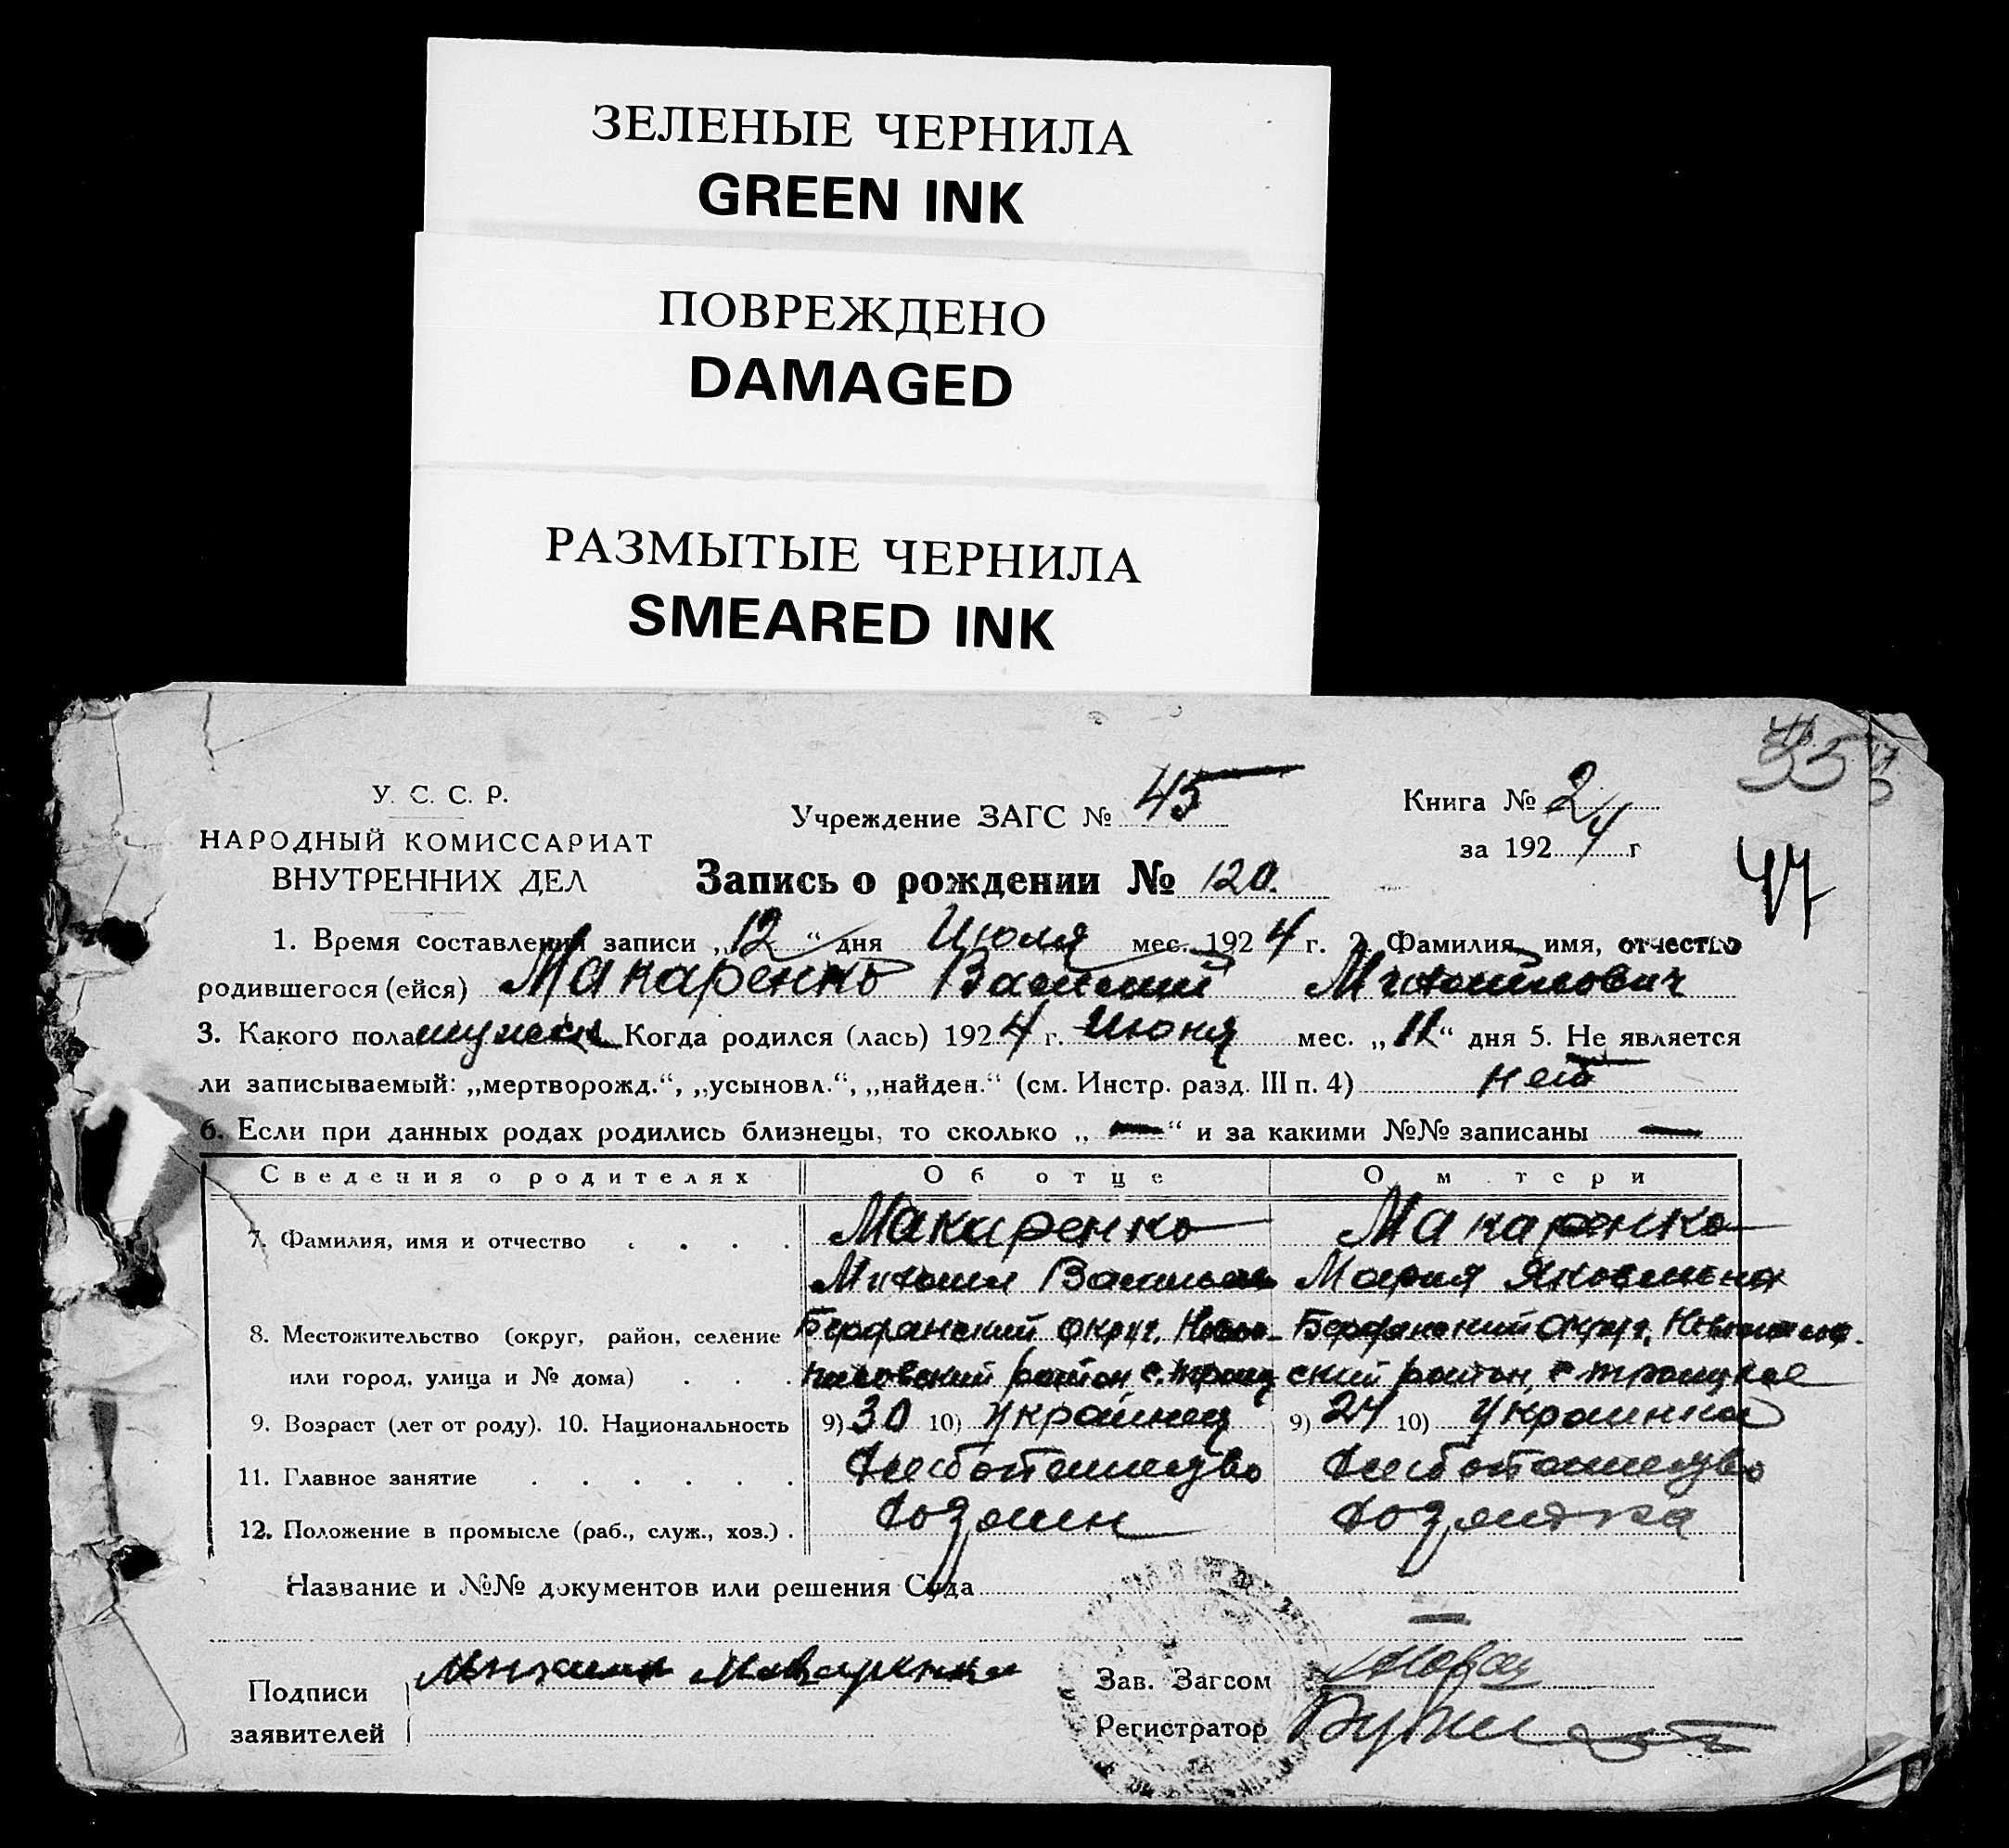 ЗЕЛЕНЫЕ ЧЕРНИЛА
GREEN INK
ПОВРЕЖДЕНО
DAMAGED
РАЗМЫТЫЕ ЧЕРНИЛА
SMEARED INK
У. С. С. Р.
НАРОДНЫЙ КОМИССАРИАТ
ВНУТРЕННИХ ДЕЛ
Учреждение ЗАГС № 45
Книга № 2
за 1924 г
47
Запись о рождении № 120.
1. Время составления записи „12“ дня Июля мес. 1924 г. 2. Фамилия, имя, отчество
родившегося (ейся) Макаренко Василий Михайлович
3. Какого пола мужеск Когда родился (лась) 1924 г. Июня мес. „11“ дня 5. Не является
ли записываемый: „мертворожд.“, „усыновл.“, „найден.“ (см. Инстр. разд. III п. 4) нет
6. Если при данных родах родились близнецы, то сколько „ — “ и за какими №№ записаны —
Сведения о родителях Об отце О м тери
7. Фамилия, имя и отчество . . . . Макаренко Макаренко
Михаил Мария Яковлевна
8. Местожительство (округ, район, селение Бердянский округ, Бердянский округ,
или город, улица и № дома) . . . район, с. район, с Троицкое
9. Возраст (лет от роду). 10. Национальность 9) 30 10) Украинец 9) 24 10) Украинка
11. Главное занятие . . . . . . Хлебопашество Хлебопашество
12. Положение в промысле (раб., служ., хоз.) . Хозяин Хозяйка
Название и №№ документов или решения Суда
—
Подписи
заявителей
Михаил Макаренко
Зав. Загсом
Регистратор